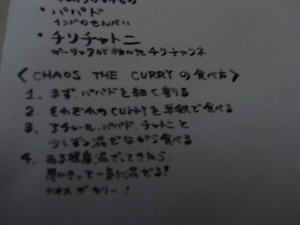 ・パパド
インドのせんべい
・チリチャトニ
ガーリックがきいたチリチャツネ
〈CHAOS THE CURRYの食べ方〉
1. まず、パパドを細く割る
2. それぞれのcurryを単独で食べる
3. アチャール、パパド、チャトニと
少しずつ混ぜながら食べる
4. ある程度、混ざってきたら、
思いきって一気に混ぜる!
カオス ザ カリー!